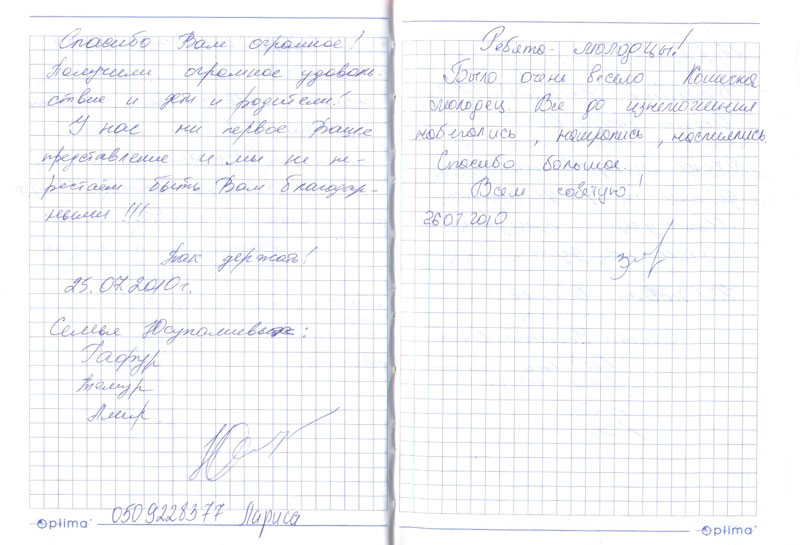 Спасибо Вам огромное!
Получили огромное удоволь-
ствие и дети и родители!
У нас ни первое Ваше
представление и мы не пе-
рестаём быть Вам благодар-
ными !!!
Так держать!
25.07.2010г.
Семья Юсупалиевых:
Гафур
Темур
Амир
0509228377 Лариса
Optima
Ребята - молодцы!
Было очень весело Кошечка
молодец. Все до изнеможения
набегались, наигрались, насмеялись.
Спасибо большое.
Всем советую!
26 07 2010
Optima